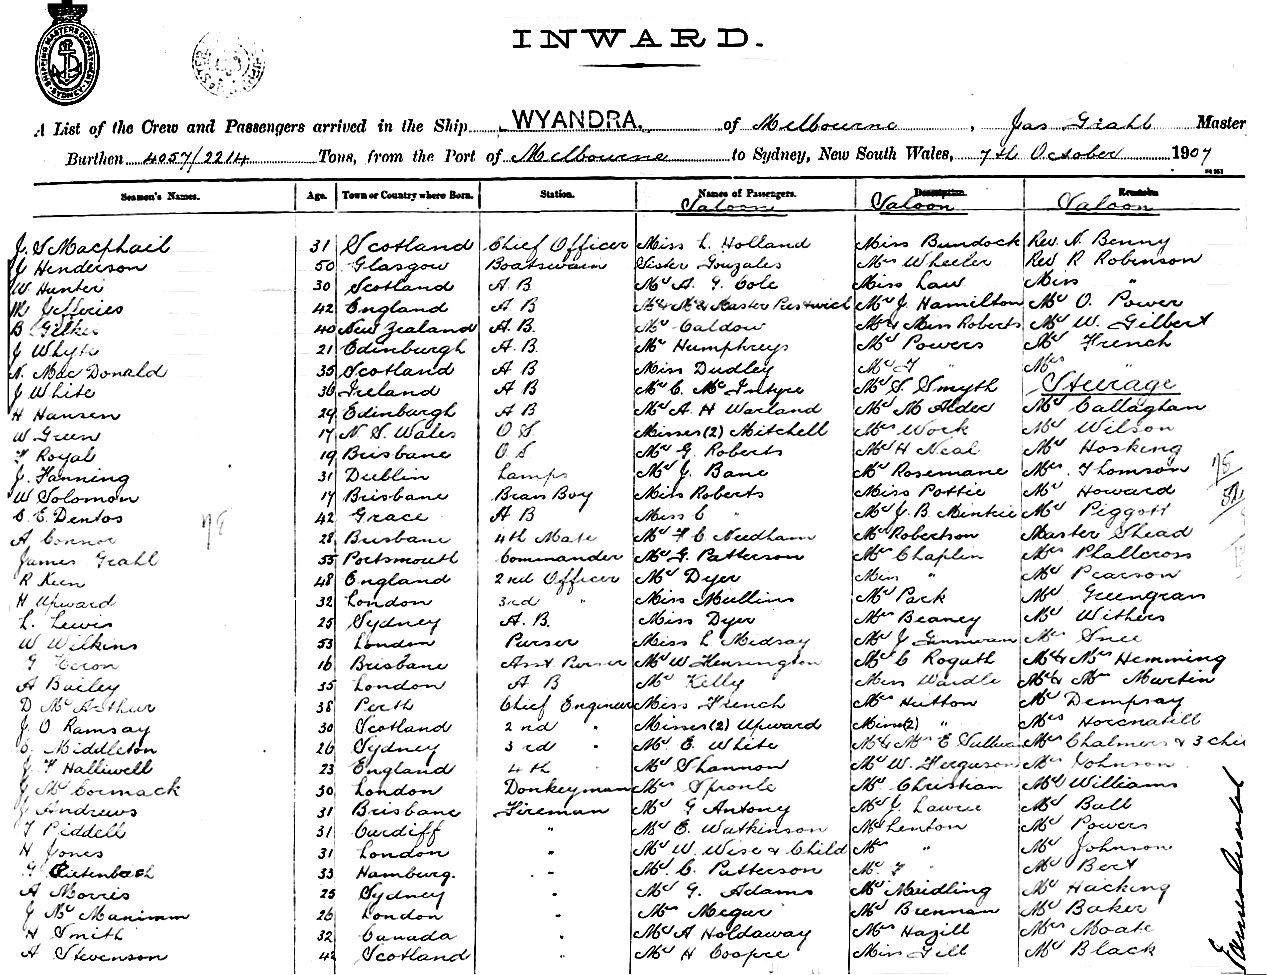 INWARD.
A List of the Crew and Passengers arrived in the Ship WYANDRA, of Melbourne, Jas Grahl Master
Burthen 4057/2214 Tons, from the Port of Melbourne to Sydney, New South Wales, 7th October 1907
Seamen's Names. Age. Town or Country where Born. Station. Names of Passengers. Description. Remarks
Saloon Saloon Saloon
J. S Macphail 31 Scotland Chief Officer Miss L. Holland Miss Bundock Rev. A. Benny
J Henderson 50 Glasgow Boatswain Sister Gonzales Mrs Wheeler Rev R Robinson
W Hunter 30 Scotland A B Mr A. G. Cole Miss Law Miss "
M Jefferies 42 England A B Mr & Mrs & Master Prestwich Mr J. Hamilton Mr O. Power
B Gilkes 40 New Zealand A. B. Mr Caldow Mr & Miss Roberts Mr W. Gilbert
J Whyte 21 Edinburgh A. B. Mr Humphreys Mr Powers Mr French
N. MacDonald 35 Scotland A B Miss Dudley Mr F " Mrs "
J White 36 Ireland A B Mr C. McIntyre Mr S Smyth Steerage
H Hansen 29 Edinburgh A B Mr A H Warland Mr M Alder Mr Callaghan
W Green 17 N. S. Wales O S. Misses (2) Mitchell Mrs Work Mr Wilson
F Royal 19 Brisbane O S Mr G. Roberts Mr H Neal Mr Hosking
J. Fanning 31 Dublin Lamps Mr J. Bane Mr Rosemane Mrs. Thomson
W Solomon 17 Brisbane Brass Boy Miss Roberts Miss Pottie Mr Howard
C E Dentos 42 Grace A B Miss C " Mr J. B Minkie Mr Piggott
A Connor 28 Brisbane 4th Mate Mr F C Needham Mr Robertson Master Shead
James Grahl 55 Portsmouth Commander Mr G. Patterson Mrs Chaplin Mrs Phalleross
R Keen 48 England 2nd Officer Mr Dyer Miss " Mr Pearson
H Upward 32 London 3rd " Miss Mullins Mr Pack Mr Greengran
L. Lewis 25 Sydney A. B. Miss Dyer Mrs Beaney Mr Withers
W Wilkins 53 London Purser Miss L Medsay Mr J Mrs Snee
G Heron 16 Brisbane Asst Purser Mr W Hensington Mr C Roguth Mr & Mrs Hemming
A Bailey 35 London A B Mr Kelly Miss Wardle Mr & Mrs Martin
D McArthur 38 Perth Chief Engineer Miss French Mrs Hutton Mr Dempsay
J O Ramsay 30 Scotland 2nd " Misses (2) Upward Miss (2) " Mrs
C. Middleton 26 Sydney 3rd " Mr E. White Mr & Mrs E Sullivan Mrs Chalmers & 3 chi
J. F Halliwell 23 England 4th " Mr Shannon Mr W. Ferguson Mrs Johnson
J McCormack 30 London Donkeyman Mrs Sproule Mr Christian Mr Williams
J Andrews 31 Brisbane Fireman Mr G Antony Mr J. Lawrie Mr Bull
T Piddell 31 Cardiff " Mr E. Watkinson Mr Lenton Mr Powers
H Jones 31 London " Mr W. Wise & Child Mrs " Mr Johnson
G 33 Hamburg. " Mr C. Patterson Mr. F " Mr Bert
A Morris 25 Sydney " Mr G. Adams Mr Meidling Mr Hacking
J McManimm 26 London " Mrs Megur Mr Brennan Mr Baker
H Smith 32 Canada " Mr A Holdaway Mrs Hazill Mrs Moate
A Stevenson 42 Scotland " Mr H Cooper Miss Gill Mr Black